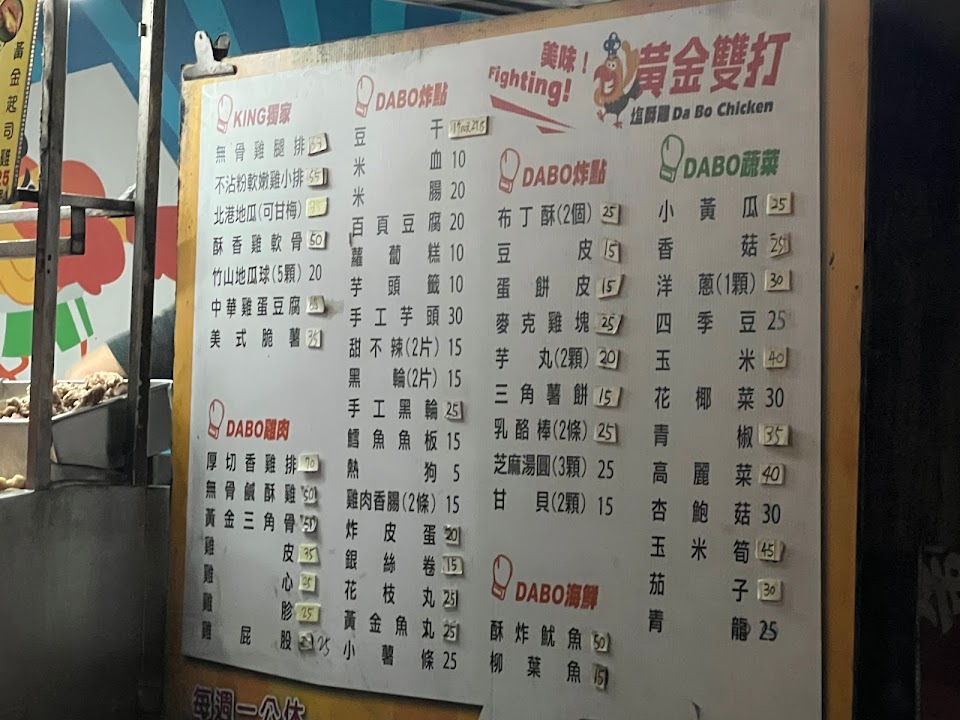 黃金起司雞
25
美味！
Fighting!
黃金雙打
塩酥雞 Da Bo Chicken
KING獨家
無骨雞腿排
不沾粉軟嫩雞小排 55
北港地瓜(可甘梅)
酥香雞軟骨 50
竹山地瓜球(5顆) 20
中華雞蛋豆腐
美式脆薯 35
DABO雞肉
厚切香雞排 70
無骨鹹酥雞 50
黃金三角骨 50
雞皮 35
雞心 35
雞胗 25
雞屁股 25
DABO炸點
豆干
米血 10
米腸 20
百頁豆腐 20
蘿蔔糕 10
芋頭籤 10
手工芋頭 30
甜不辣(2片) 15
黑輪(2片) 15
手工黑輪 25
鱈魚魚板 15
熱狗 5
雞肉香腸(2條) 15
炸皮蛋 20
銀絲卷 15
花枝丸 25
黃金魚丸 25
小薯條 25
DABO炸點
布丁酥(2個) 25
豆皮 15
蛋餅皮 15
麥克雞塊 25
芋丸(2顆) 20
三角薯餅 15
乳酪棒(2條) 25
芝麻湯圓(3顆) 25
甘貝(2顆) 15
DABO海鮮
酥炸魷魚 50
柳葉魚 15
DABO蔬菜
小黃瓜 25
香菇 25
洋蔥(1顆) 30
四季豆 25
玉米 40
花椰菜 30
青椒 35
高麗菜 40
杏鮑菇 30
玉米筍 45
茄子 30
青龍 25
每週一公休